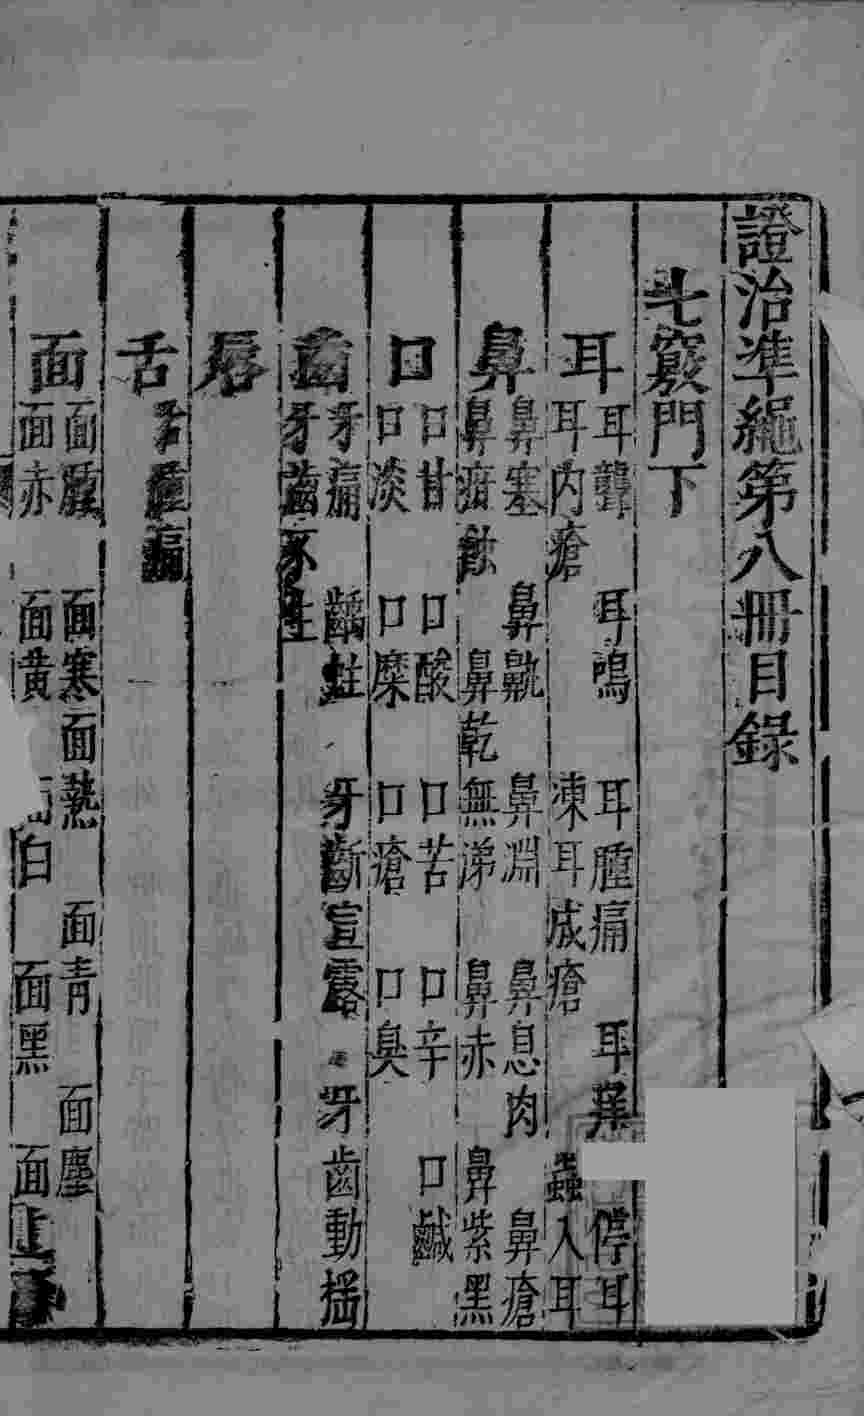 證治準繩第八冊目錄
七竅門下
耳
耳聾 耳鳴 耳腫痛 耳痒 停耳
耳内瘡 凍耳成瘡 蟲入耳
鼻
鼻塞 鼻鼽 鼻淵 鼻息肉 鼻瘡
鼻疳蝕 鼻乾無涕 鼻赤 鼻紫黑
口
口甘 口酸 口苦 口辛 口鹹
口淡 口糜 口瘡 口臭
齒
牙痛 齲蛀 牙齗宣露 牙齒動揺
牙齒不生
唇
舌
面
面腫 面寒 面熱 面青 面塵
面赤 面黄 白 面黑 面